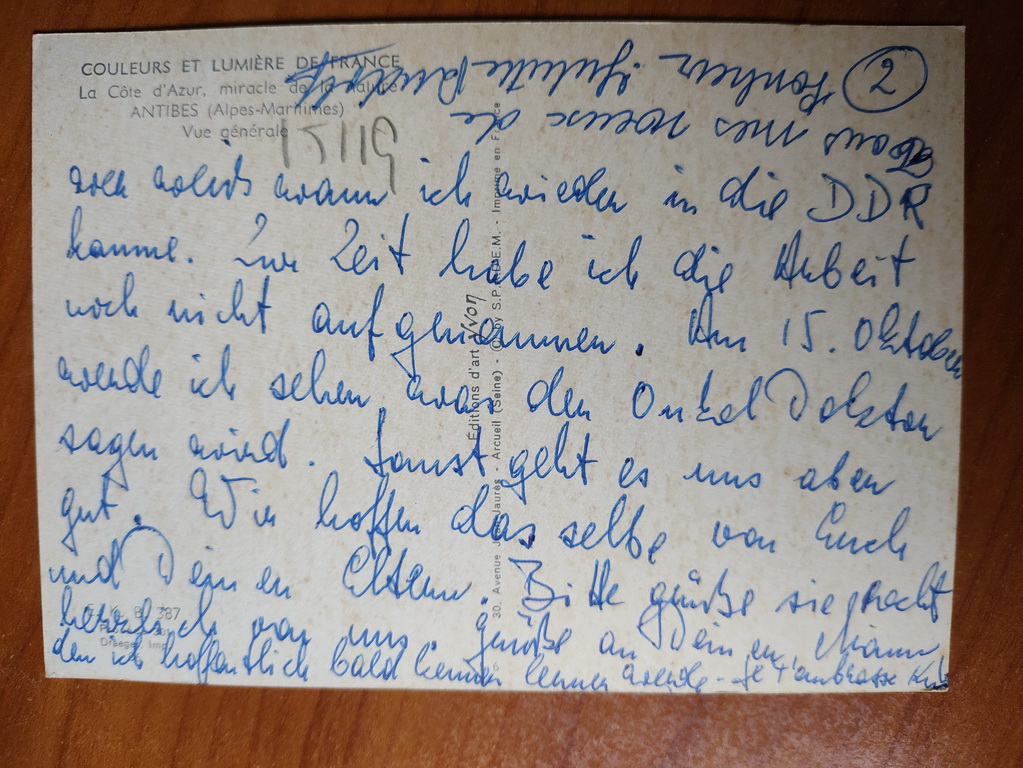 COULEURS ET LUMIÈRE DE FRANCE
La Côte d'Azur, miracle de la nature
ANTIBES (Alpes-Maritimes)
Vue générale
15119
2
tous mes voeux de
Bonheur
wer weids wann ich wieder in die DDR
komme. Zur Zeit habe ich die Arbeit
noch nicht aufgenommen. Am 15. Oktober
werde ich sehen was der Onkel Doktor
sagen wird. Sonst geht es uns aber
gut. Wir hoffen das selbe von Euch
und Deinen Eltern. Bitte grüße sie recht
herzlich von uns. grüße an Deinen Mann
den ich hoffentlich bald kennen lernen werde - Je t'embrasse
Éditions d'art Yvon
30, Avenue Jean Jaurès - Arcueil (Seine) - by S.P.A.D.E.M. - Imprimé en France
387